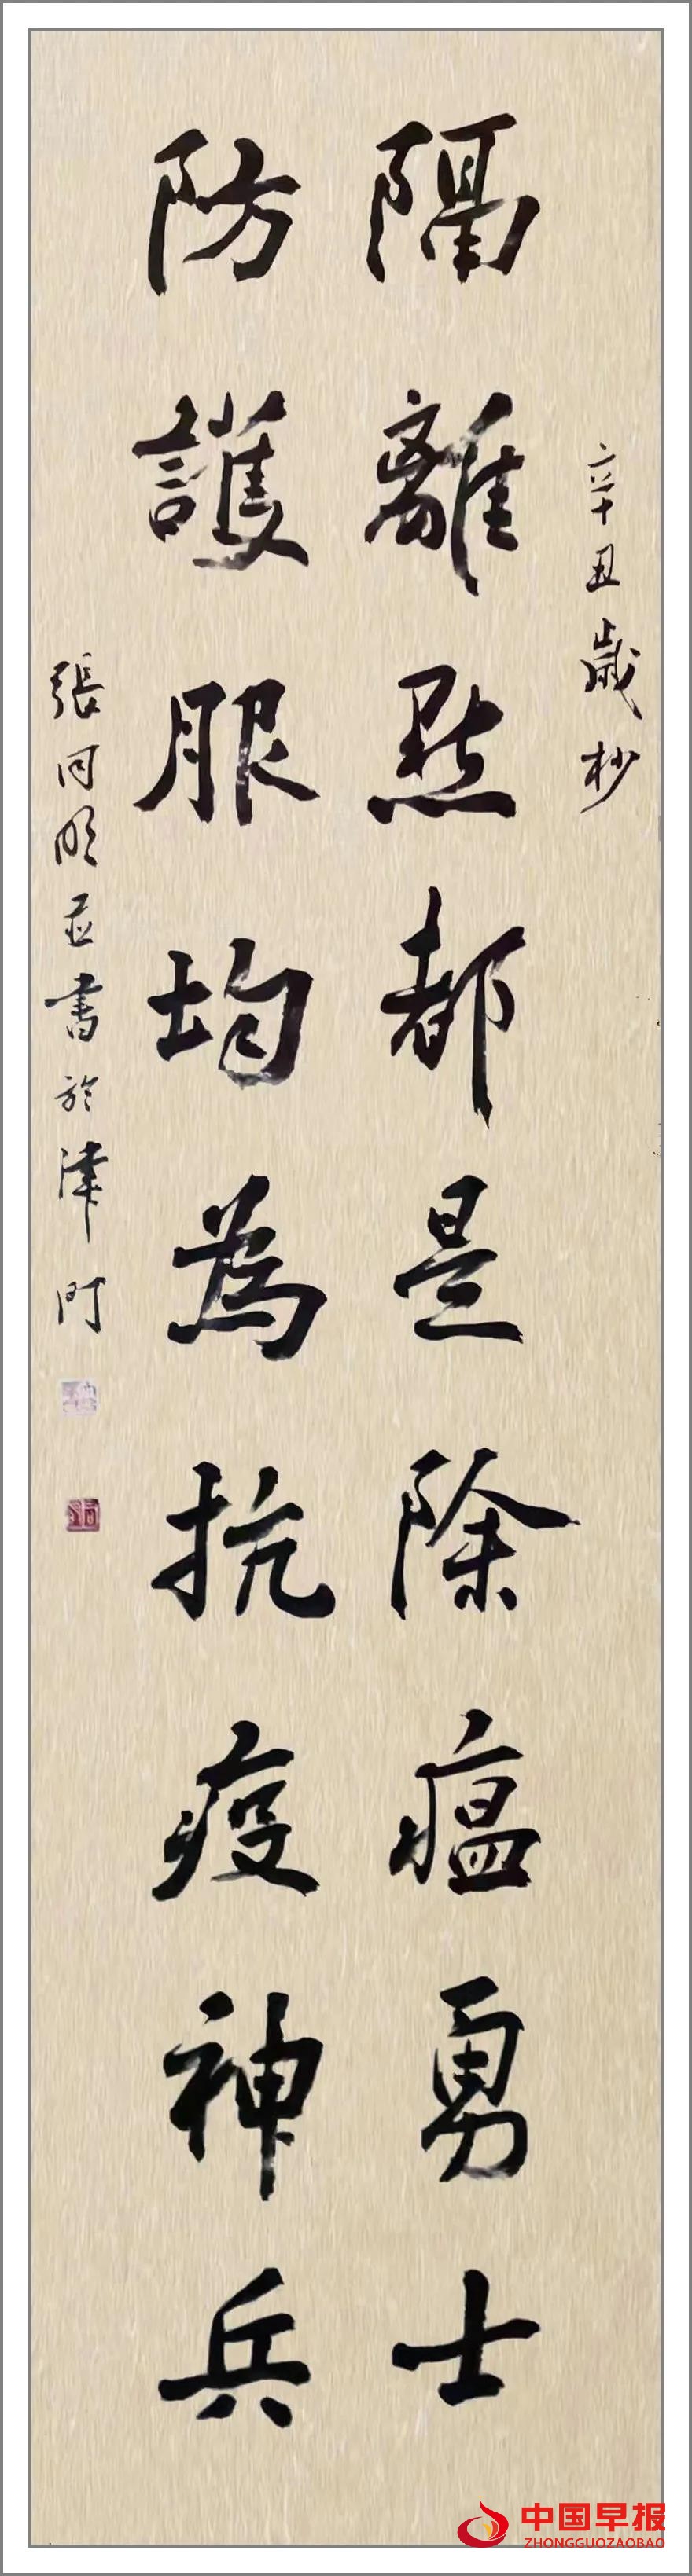 辛丑歲杪
隔離點都是除瘟勇士
防護服均為抗疫神兵
張同明並書於津門
中国早报
ZHONGGUOZAOBAO